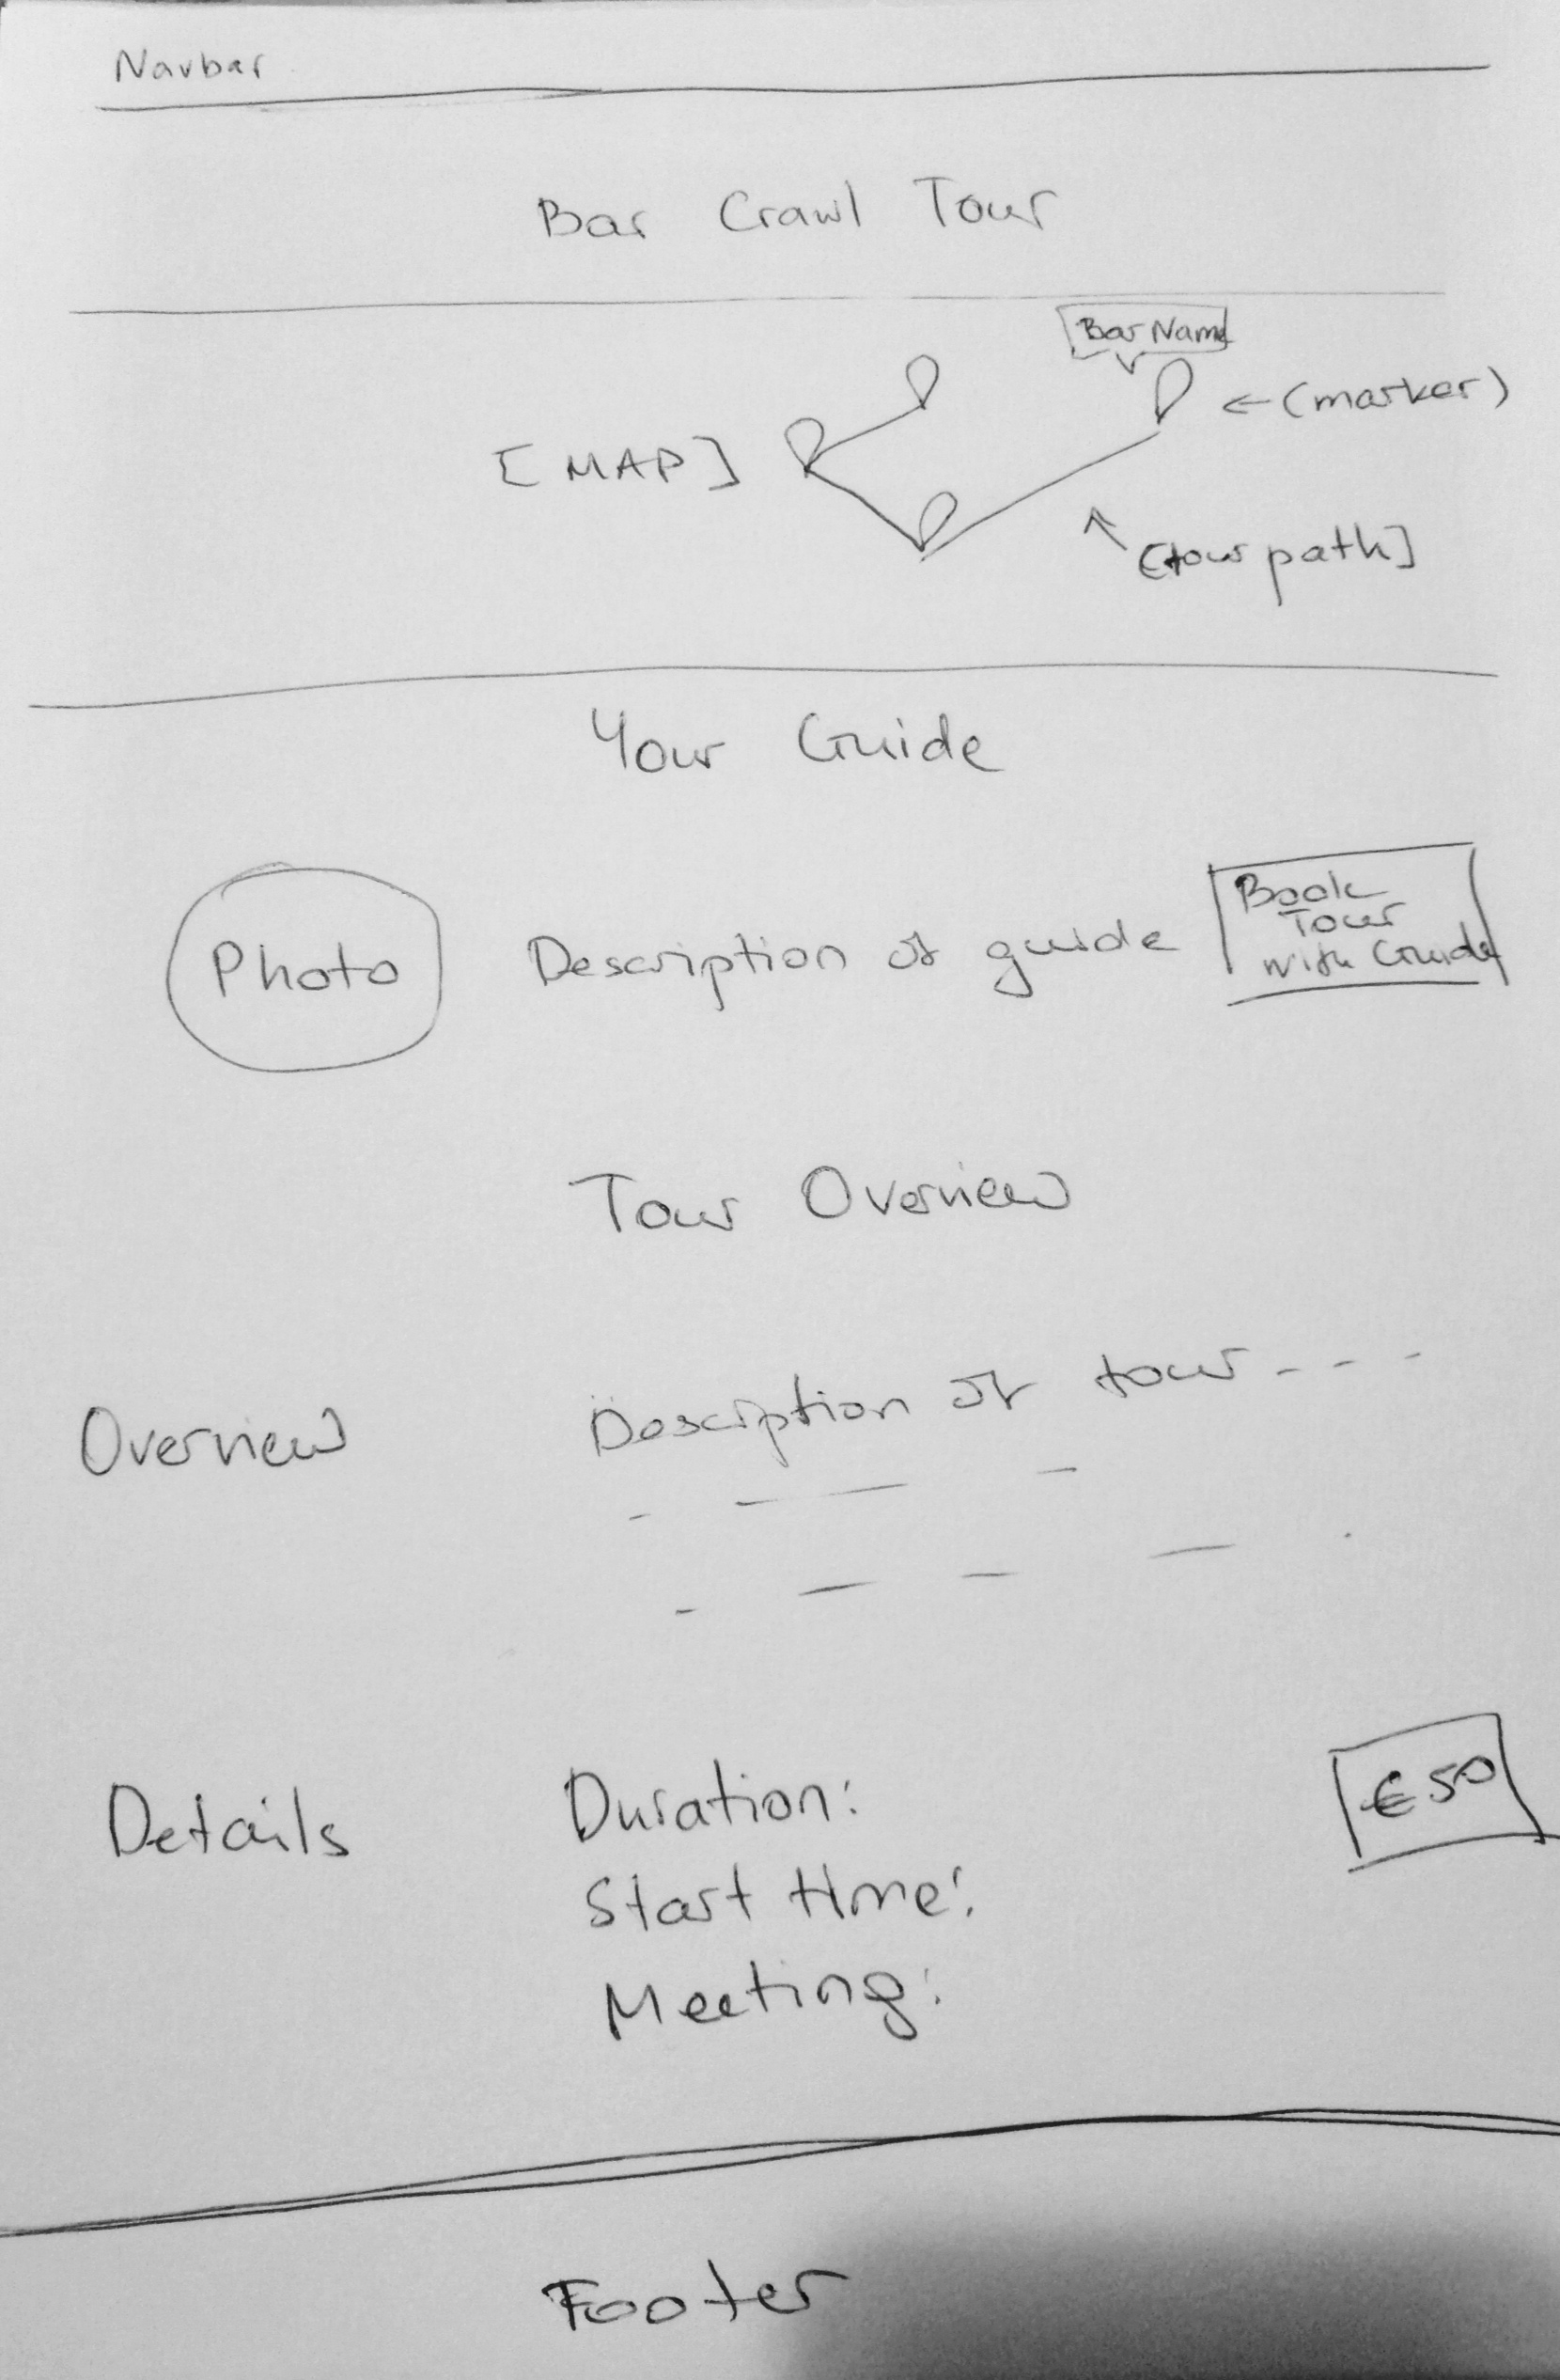 Navbar
Bar Crawl Tour
Bar Name
[MAP]
←(marker)
[tour path]
Your Guide
Photo
Description of guide
Book
Tour
with Guide
Tour Overview
Overview
Description of tour - - -
Details
Duration:
Start time:
Meeting:
€50
Footer